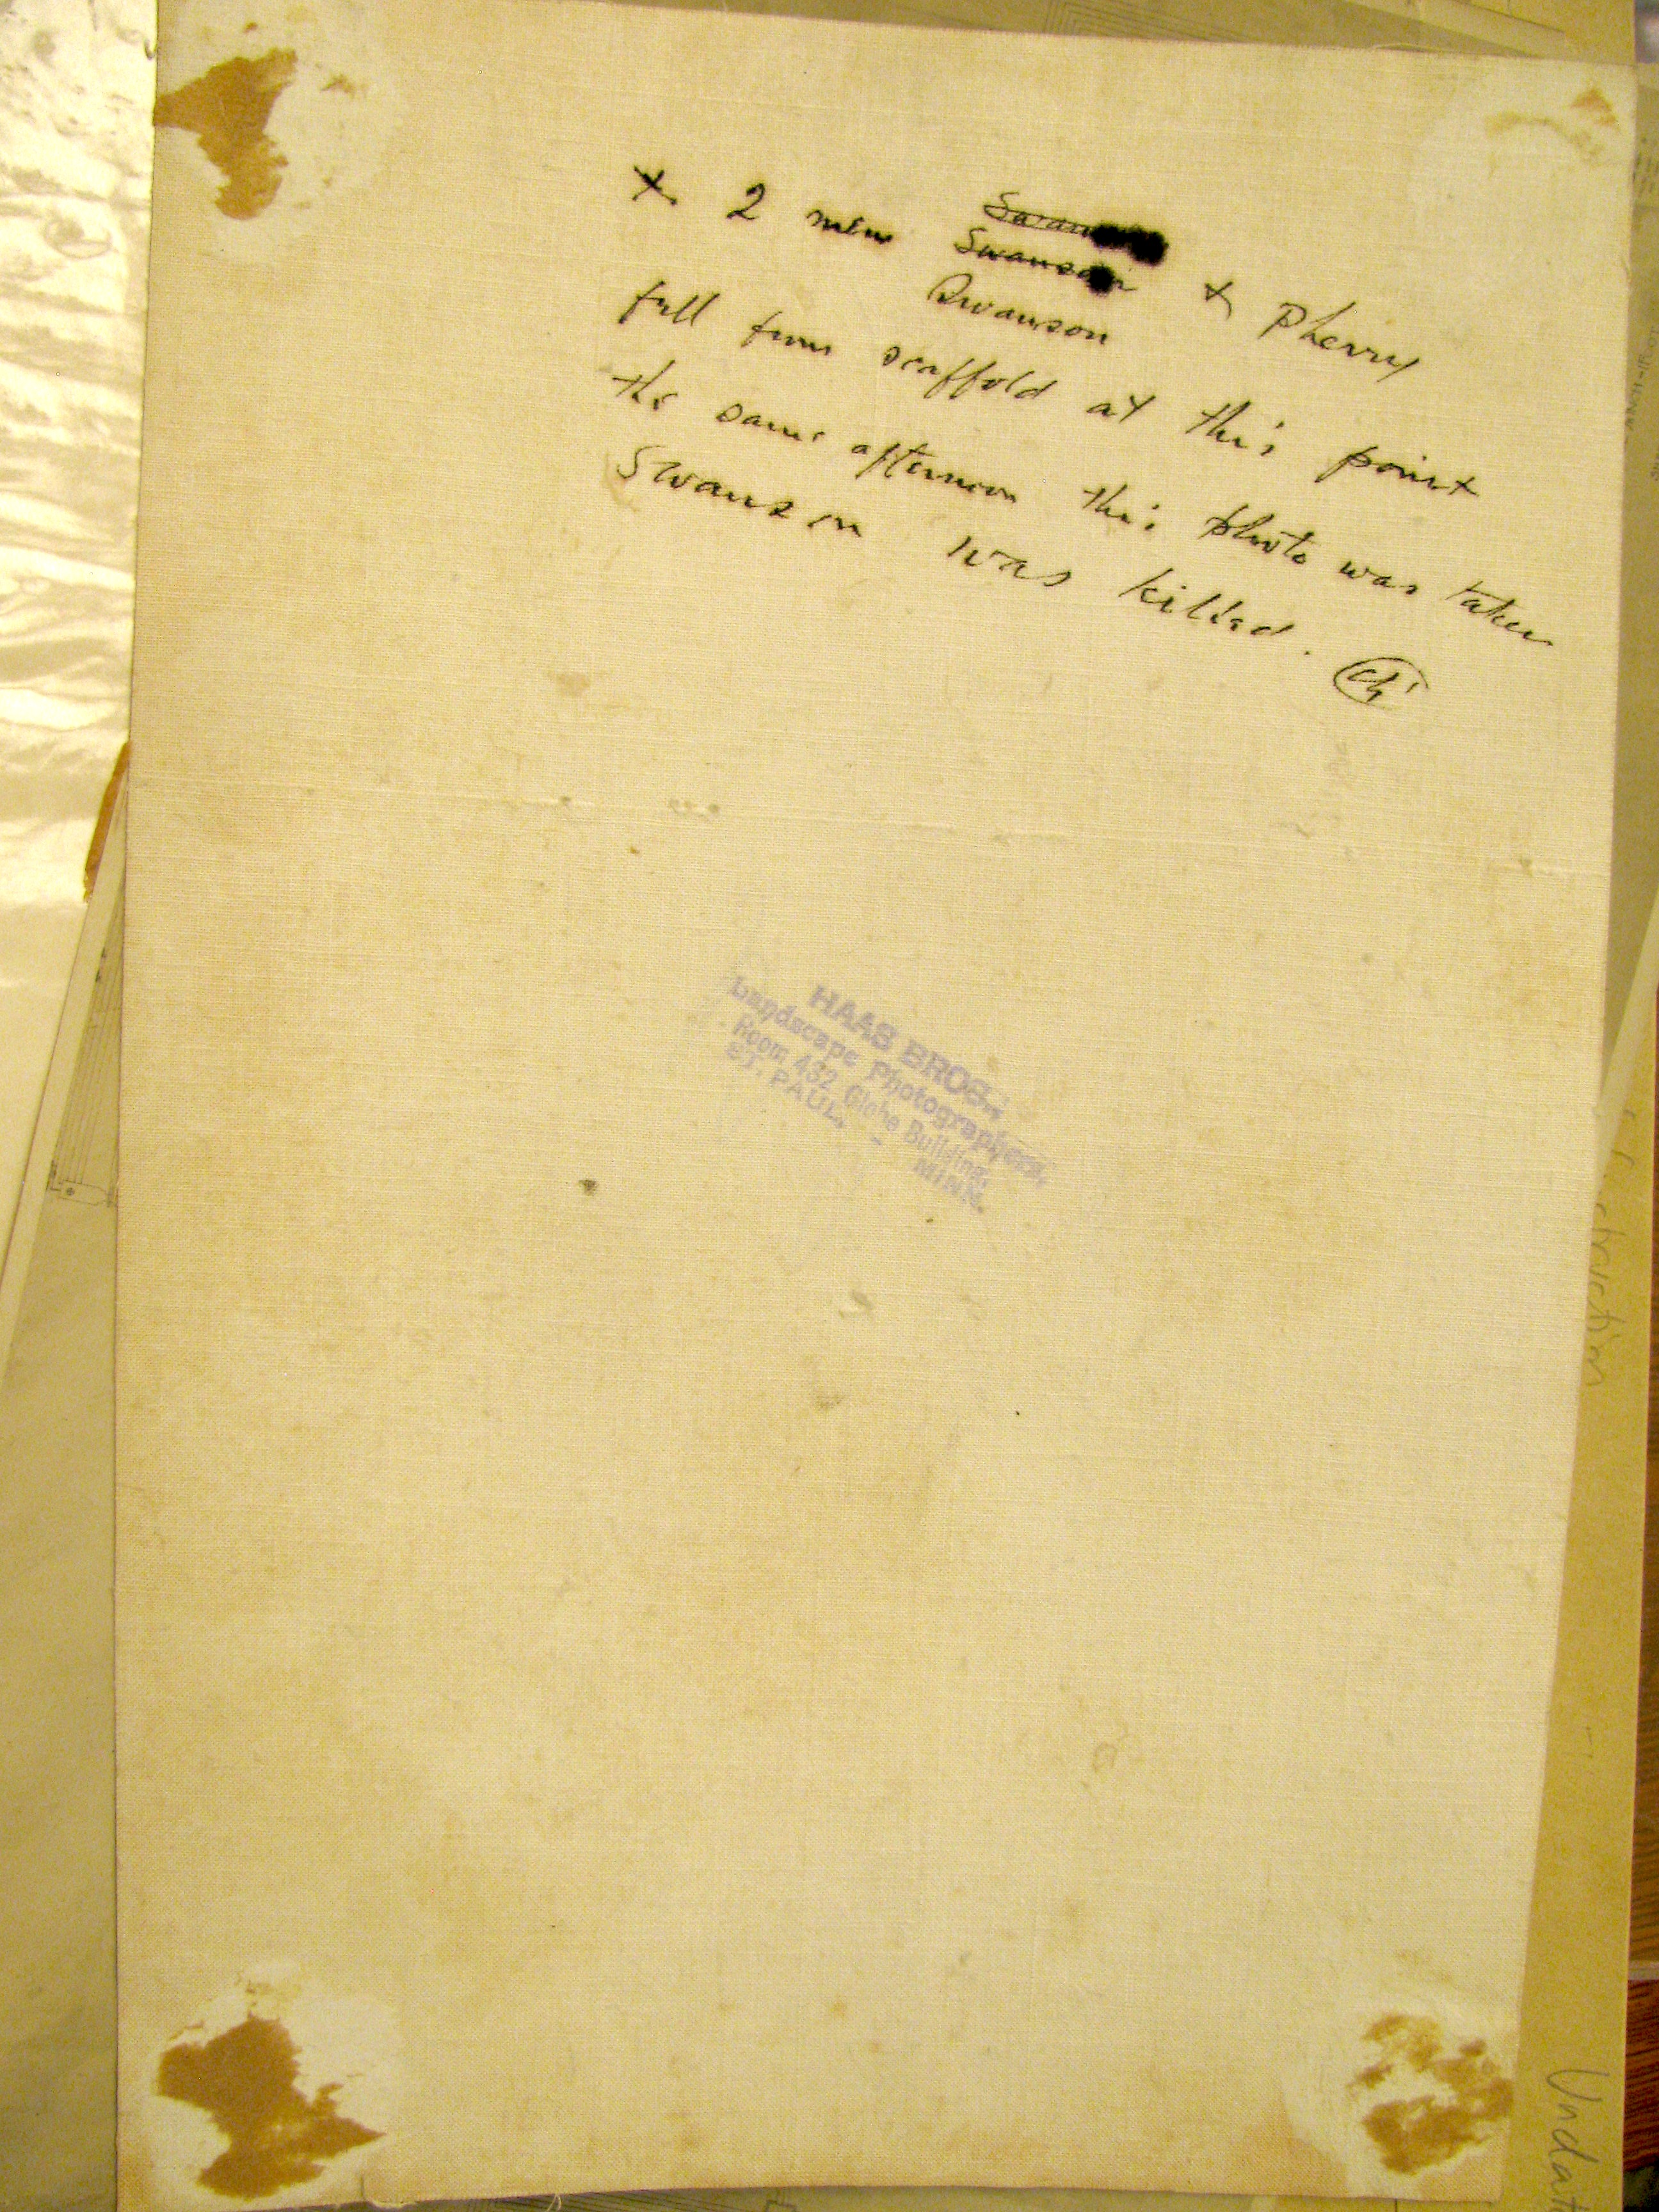 x 2 men Swanson + Pherry
Swanson
fell from scaffold at this point
the same afternoon this photo was taken
Swanson was killed.
HAAS BROS.,
Landscape Photographers,
Room 432 Globe Building,
ST. PAUL, - MINN.
Undat